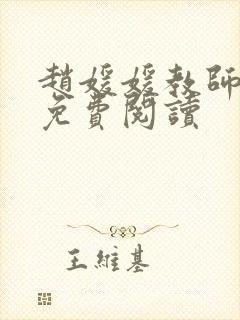 趙媛媛教師
免費閱讀
王維基